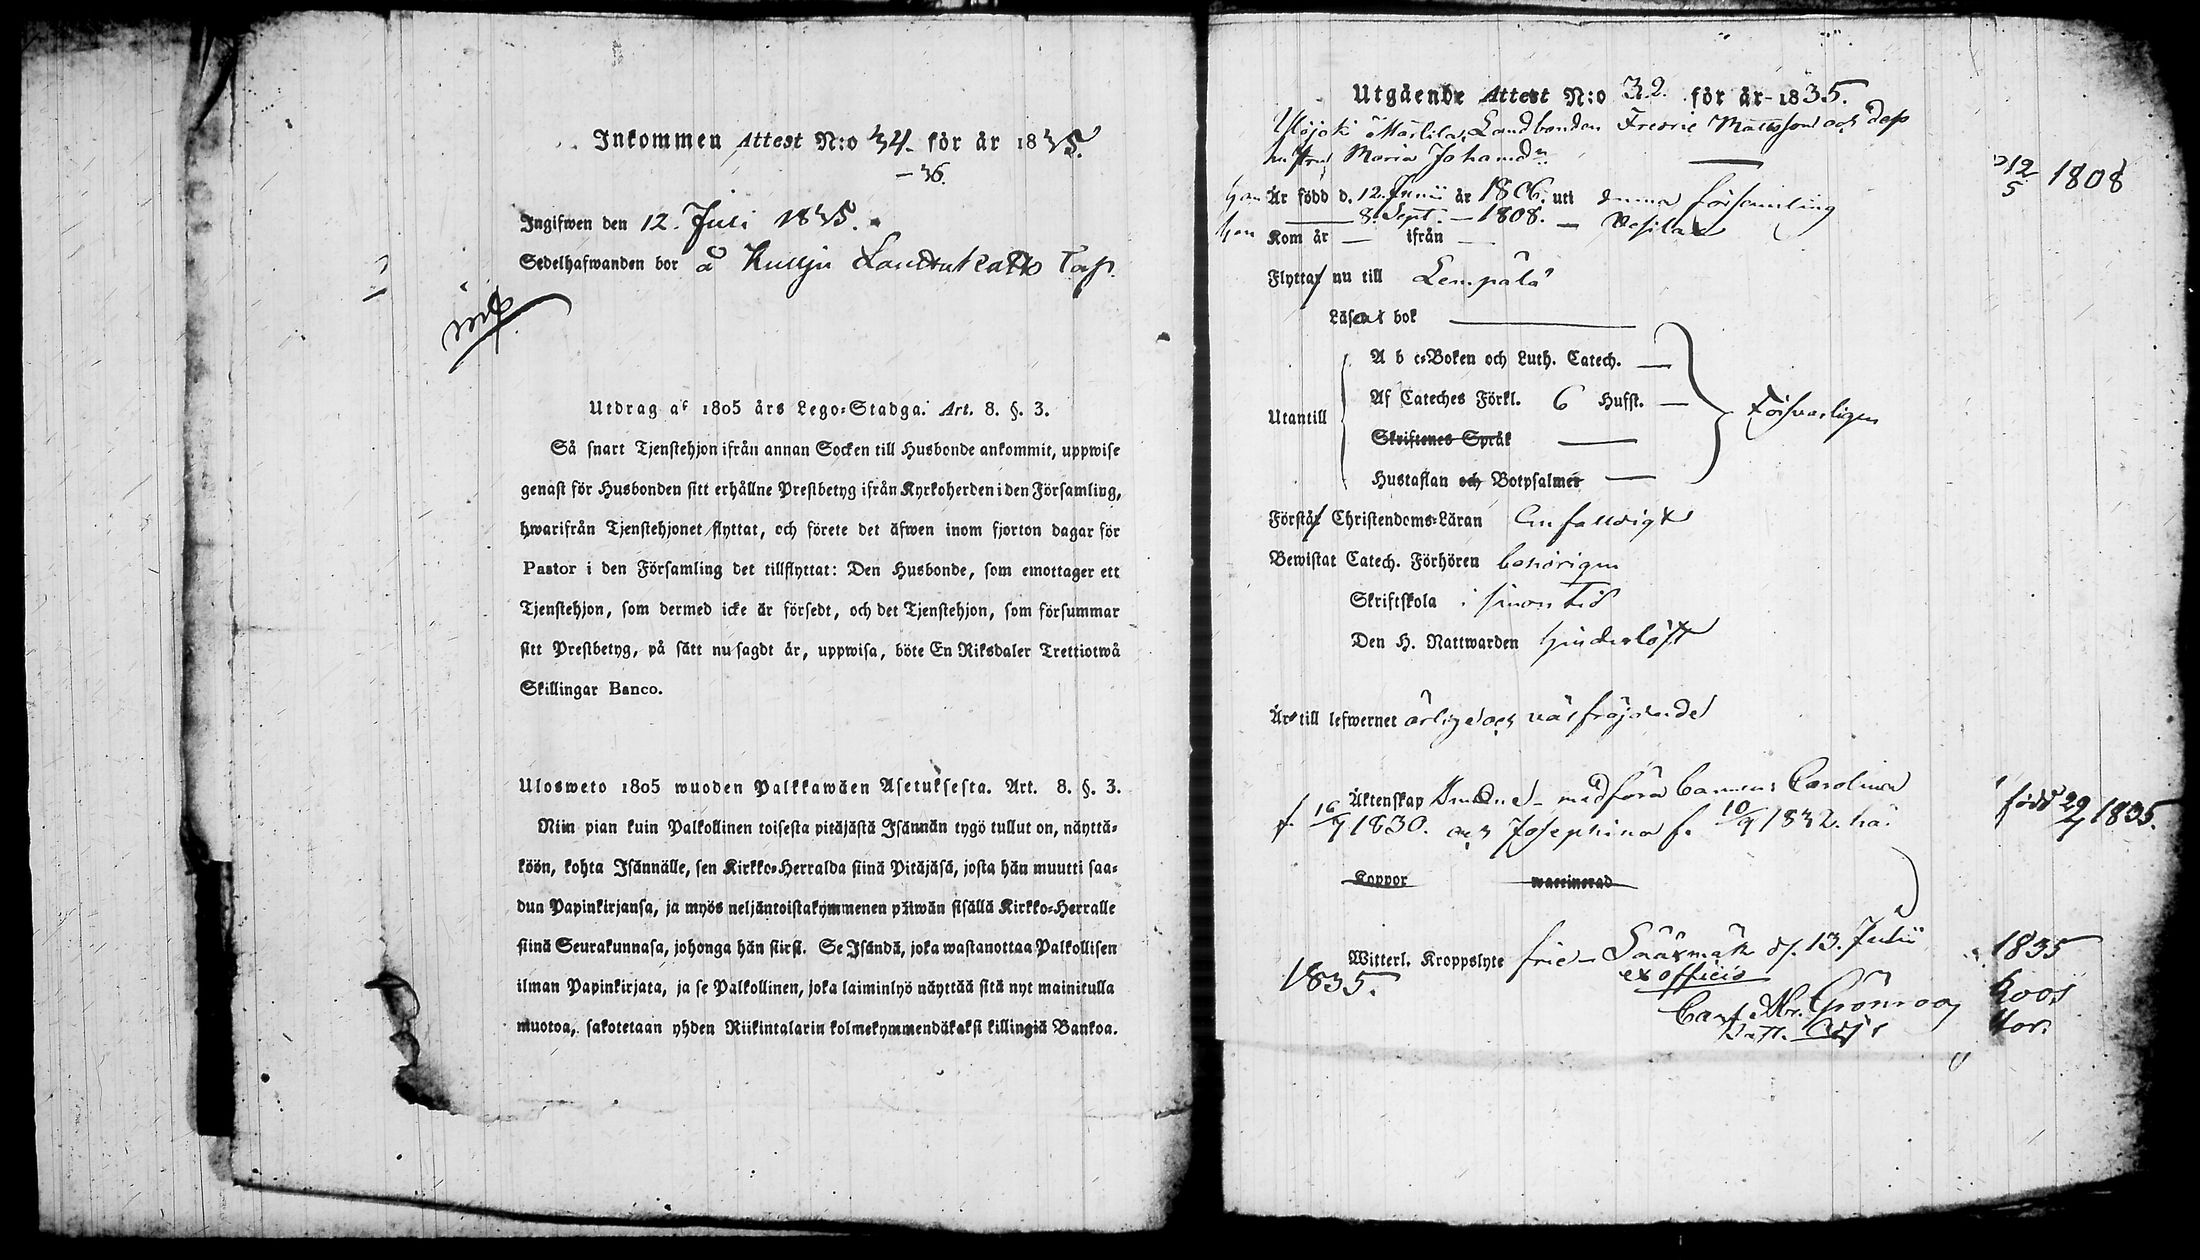 Inkommen Attest N:o 34. för år 1835.
– 36.
Ingifwen den 12. Juli 1835.
Sedelhafwanden bor å Kulju Torp.
Utdrag af 1805 års Lego-Stadga. Art. 8. §. 3.
Så snart Tjenstehjon ifrån annan Socken till Husbonde ankommit, uppwise
genast för Husbonden sitt erhållne Prestbetyg ifrån Kyrkoherden i den Församling,
hwarifrån Tjenstehjonet flyttat, och förete det äfwen inom fjorton dagar för
Pastor i den Församling det tillflyttat: Den Husbonde, som emottager ett
Tjenstehjon, som dermed icke är försedt, och det Tjenstehjon, som försummar
sitt Prestbetyg, på sätt nu sagdt är, uppwisa, böte En Riksdaler Trettiotwå
Skillingar Banco.
Ulosweto 1805 wuoden Palkkawäen Asetuksesta. Art. 8. §. 3.
Niin pian kuin Palkollinen toisesta pitäjästä Isännän tygö tullut on, näyttä-
köön, kohta Isännälle, sen Kirkko-Herralda siinä Pitäjäsä, josta hän muutti saa-
dun Papinkirjansa, ja myös neljäntoistakymmenen päiwän sisällä Kirkko-Herralle
siinä Seurakunnasa, johonga hän siirsi. Se Isändä, joka wastanottaa Palkollisen
ilman Papinkirjata, ja se Palkollinen, joka laiminlyö näyttää sitä nyt mainitulla
muotoa, sakotetaan yhden Riikintalarin kolmekymmendäkaksi killingiä Bankoa.
Utgående Attest N:o 32. för år 1835.
Landbonden Fredric Mattsson och dess
hustru Maria Johansdr
12/5 1808
han Är född d. 12. Junii år 1806. uti denna församling
hon — 8. Sept. — 1808. — Vesilax
Kom år — ifrån —
Flyttar nu till Lempälä
Läsa i bok
A b c-Boken och Luth. Catech. —
Af Cateches Förkl. 6 Husst. —
Utantill
Försvarligen
Skriftenes Språk
Hustaflan och Botpsalmer —
Förstår Christendoms-Läran Enfalldigt
Bewistat Catech. Förhören behörigen
Skriftskola i sinom tid
Den H. Nattwarden hinderlöst
Är till lefwernet ärlige och väl frejdade
Äktenskap medföra barnen: Carolina
född 29/7 1835.
f. 16/9 1830. och Josephina f. 10/9 1832.
Koppor waccinerad
Witterl. Kroppslyte frie – Sääxmäki d. 13. Julii
1835
1835.
ex officio
Carl Abr. Grönroos
Past. Adj:s